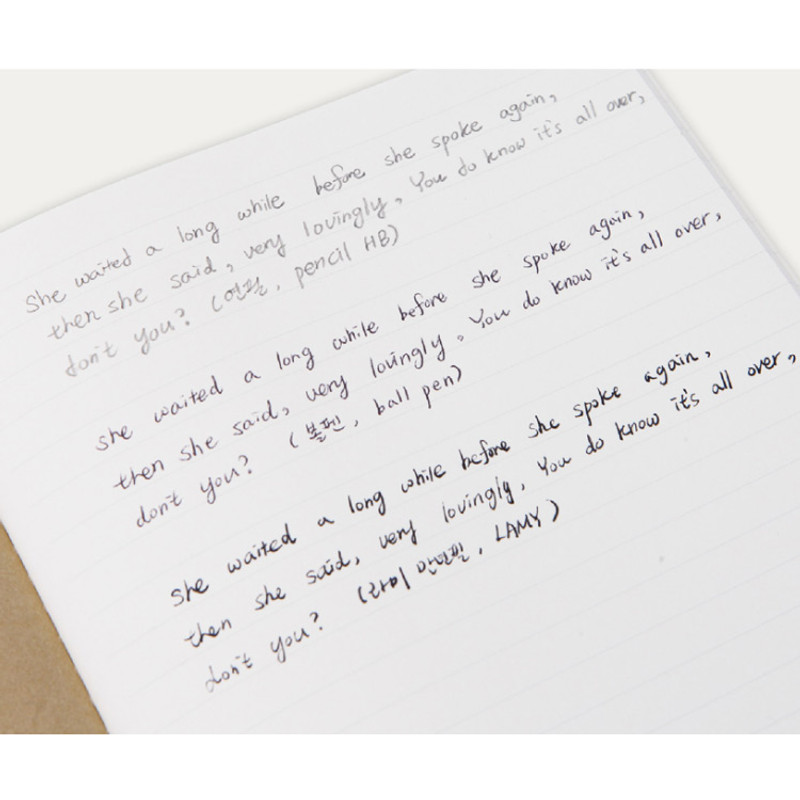 She waited a long while before she spoke again,
then she said, very lovingly, You do know it's all over,
don't you? (연필, pencil HB)
She waited a long while before she spoke again,
then she said, very lovingly. You do know it's all over,
don't you? (볼펜, ball pen)
She waited a long while before she spoke again,
then she said, very lovingly, You do know it's all over,
don't you? (라미 만년필, LAMY)